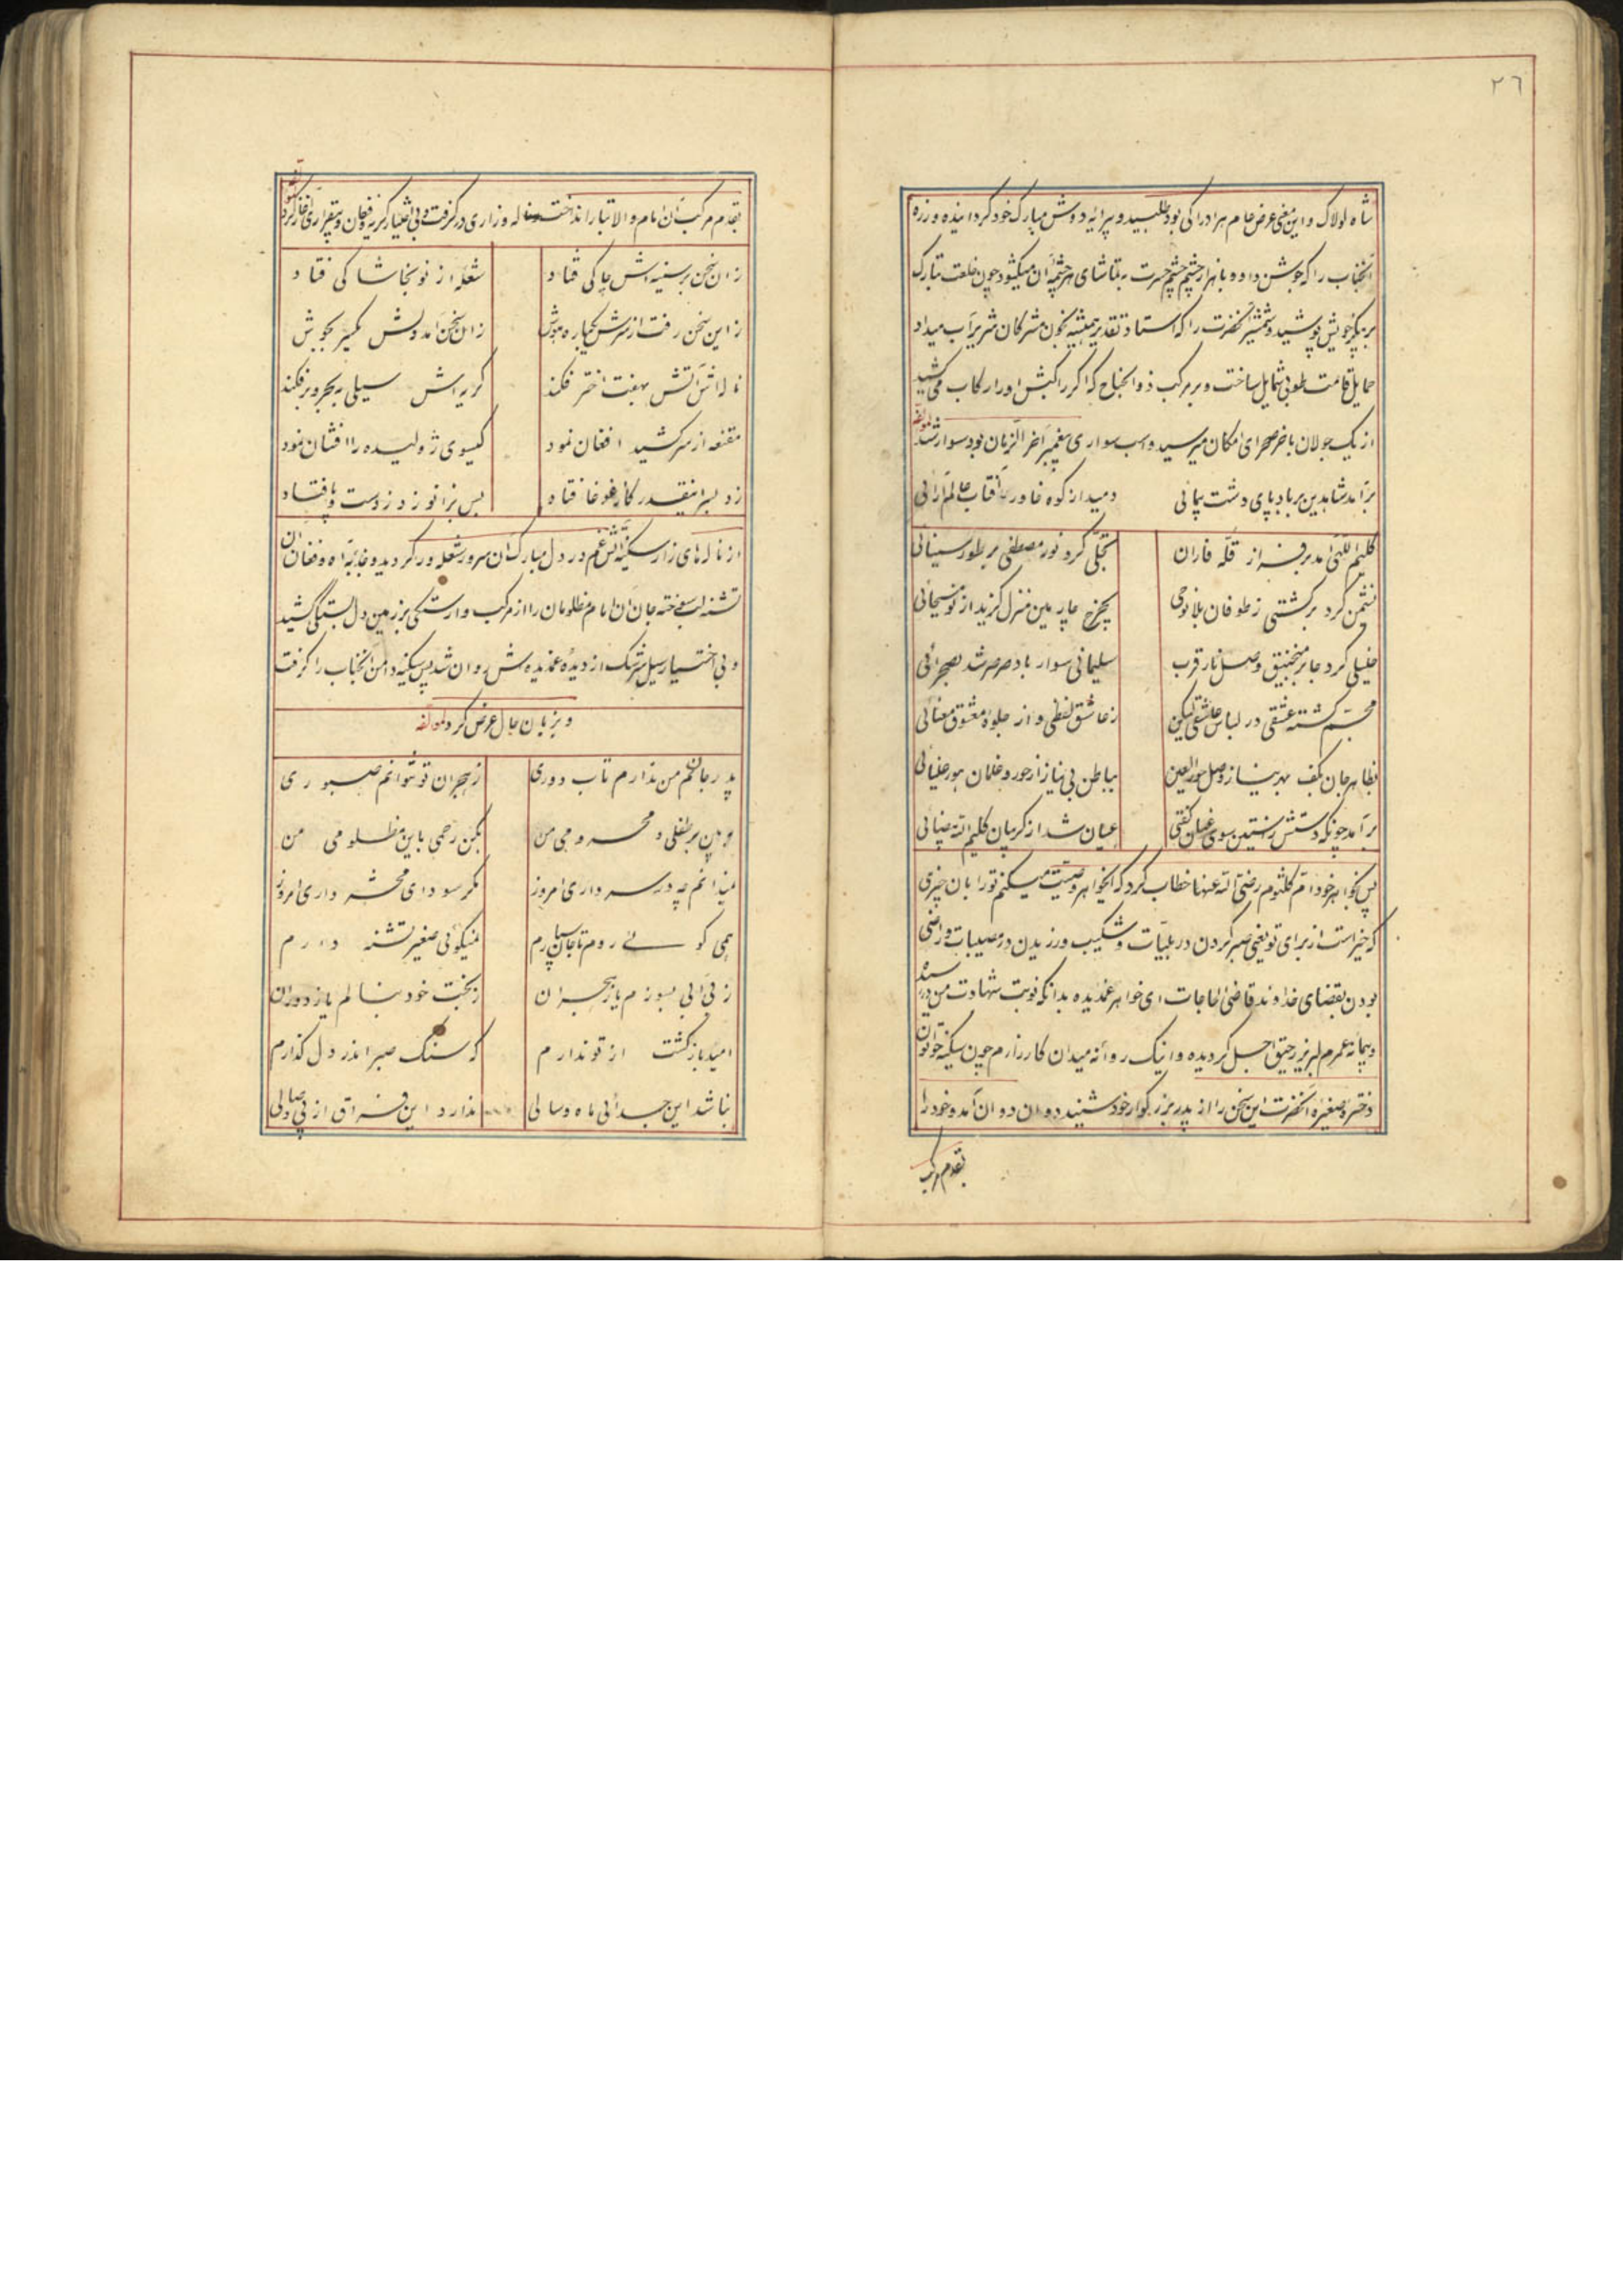 ٢٦
شاه لولاک و این معنی عرض عام هر ادراکی بود طلبیید و پیرایه دوش مبارک خود کردانیده و زره
آنجناب را که جوشن داود با هزار چشم چشم حسرت بتماشای هر چشمه آن میکشود چون خلعت تبارک
بر پیکر خویش پوشید و شمشیر آنحضرت را که استاد تقدیر همیشه بخون مشرکان شریر آب میداد
حمایل قامت طوبی شمایل ساخت و بر مرکب ذوالجناح که اکر راکبش او را رکاب می کشید
از یک جولان باخر صحرای امکان میرسید و اسب سواری پیغمبر آخر الزمان بود سوار شد لمؤلفه
برآمد شاه دین بر باد پای دشت پیمائی دمید از کوه خاور آفتاب عالم آرائی
کلیم اللهی آمد بر فراز قله فاران تجلی کرد نور مصطفی بر طور سینائی
نشیمن کرد بر کشتی ز طوفان بلا نوحی بچرخ چارمین منزل کزید از نو مسیحائی
خلیلی کرد جا بر منجنیق وصل نار قرب سلیمانی سوار باد صرصر شد بصحرائی
مجسّم کشته عشقی در لباس عاشقی لیکن ز عاشق لفظی و از جلوه معشوق معنائی
بظاهر جان بکف بهر نیاز وصل حور العین بباطن بی نیاز از حور و غلمان
برآمد چونکه دستش ز آستین سوی عنان کفتی عیان شد از کریبان کلیم الله ضیائی
پس بخواهر خود ام کلثوم رضی الله عنها خطاب کرد که ایخواهر وصیت میکنم تو را بان چیزی
که خیر است از برای تو یعنی صبر کردن در بلیّات و شکیب ورزیدن در مصیبات و راضی
بودن بقضای خداوند قاضی الحاجات ای خواهر غمدیده بدانکه نوبت شهادت من در رسیده
و پیمانه عمرم لبریز رحیق اجل کردیده و اینک روانه میدان کارزارم چون سکینه خواتون
دختر صغیره آنحضرت این سخن را از پدر بزرکوار خود شنید دوان دوان آمد و خود را
بقدم مرکب
بقدم مرکب آن امام والاتبار انداخت ناله و زاری در کرفت و بی اختیار کریه و فغان و بیقراری آغاز کرد لمؤلفه
زان سخن بر سینه اش چاکی فتاد شعله از نو بخاشاکی فتاد
زاین سخن رفت از سرش یکباره هوش زان سخن آمد دلش یکسر بجوش
ناله اش آتش بهفت اختر فکند کریه اش سیلی ببحر و بر فکند
مقنعه از سر کشید افغان نمود کیسوی ژولیده را افشان نمود
زد بسر اینقدر کز غوغا فتاد بس بزانو زد ز دست و پا فتاد
از ناله های زار سکینه آتش غم در دل مبارک آن سرور شعله ور کردیده و جاذبه آه و فغان آن
تشنه لب سوخته جان آن امام مظلومان را از مرکب وارستگی بزمین دل بستگی کشید
و بی اختیار سیل سرشک از دیده غمدیده ش روان شد پس سکینه دامن آنجناب را کرفت
و بزبان حال عرض کرد لمؤلفه
پدر جانم من ندارم تاب دوری ز هجران تو نتوانم صبوری
ببین بر طفلی و محرومی من بکن رحمی باین مظلومی من
نمیدانم چه در سر داری امروز مکر سودای محشر داری امروز
همی کوئی روم تا جان سپارم نمیکوئی صغیر تشنه دارم
ز بی آبی بسوزم یا ز هجران ز بخت خود بنالم یا ز دوران
امید بازکشت از تو ندارم که سنگ صبر اندر دل کذارم
نباشد این جدائی ماه و سالی ندارد این فراق از پی وصالی